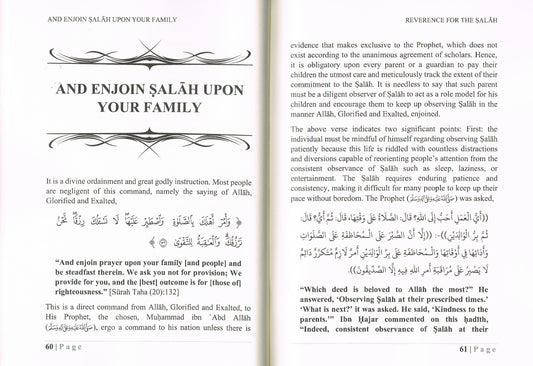 AND ENJOIN ṢALĀH UPON YOUR FAMILY
AND ENJOIN ṢALĀH UPON
YOUR FAMILY
It is a divine ordainment and great godly instruction. Most people
are negligent of this command, namely the saying of Allāh,
Glorified and Exalted,
﴿ وَأْمُرْ أَهْلَكَ بِالصَّلَوٰةِ وَاصْطَبِرْ عَلَيْهَا لَا نَسْـَٔلُكَ رِزْقًا نَّحْنُ
نَرْزُقُكَ وَالْعَـٰقِبَةُ لِلتَّقْوَىٰ ﴾
“And enjoin prayer upon your family [and people] and
be steadfast therein. We ask you not for provision; We
provide for you, and the [best] outcome is for [those of]
righteousness.” [Sūrah Ṭaha (20):132]
This is a direct command from Allāh, Glorified and Exalted, to
His Prophet, the chosen, Muḥammad ibn ʿAbd Allāh
(ﷺ), ergo a command to his nation unless there is
60 | P a g e
REVERENCE FOR THE ṢALĀH
evidence that makes exclusive to the Prophet, which does not
exist according to the unanimous agreement of scholars. Hence,
it is obligatory upon every parent or a guardian to pay their
children the utmost care and meticulously track the extent of their
commitment to the Ṣalāh. It is needless to say that such parent
must be a diligent observer of Ṣalāh to act as a role model for his
children and encourage them to keep up observing Ṣalāh in the
manner Allāh, Glorified and Exalted, enjoined.
The above verse indicates two significant points: First: the
individual must be mindful of himself regarding observing Ṣalāh
patiently because this life is riddled with countless distractions
and diversions capable of reorienting people’s attention from the
consistent observance of Ṣalāh such as sleep, laziness, or
entertainment. The Ṣalāh requires enduring patience and
consistency, making it difficult for many people to keep up their
pace without boredom. The Prophet (ﷺ) was asked,
((أَيُّ الْعَمَلِ أَحَبُّ إِلَى اللهِ؟ قَالَ: الصَّلَاةُ عَلَى وَقْتِهَا، قَالَ: ثُمَّ أَيٌّ؟ قَالَ:
ثُمَّ بِرُّ الْوَالِدَيْنِ))-: ((إِلَّا أَنَّ الصَّبْرَ عَلَى الْمُحَافَظَةِ عَلَى الصَّلَوَاتِ
وَأَدَائِهَا فِي أَوْقَاتِهَا وَالْمُحَافَظَةَ عَلَى بِرِّ الْوَالِدَيْنِ أَمْرٌ لَازِمٌ مُتَكَرِّرٌ دَائِمٌ
لَا يَصْبِرُ عَلَى مُرَاقَبَةِ أَمْرِ اللهِ فِيهِ إِلَّا الصِّدِّيقُونَ)).
“Which deed is beloved to Allāh the most?” He
answered, ‘Observing Ṣalāh at their prescribed times.’
‘What is next?’ it was asked. He said, ‘Kindness to the
parents.’” Ibn Ḥajar commented on this ḥadīth,
“Indeed, consistent observance of Ṣalāh at their
61 | P a g e